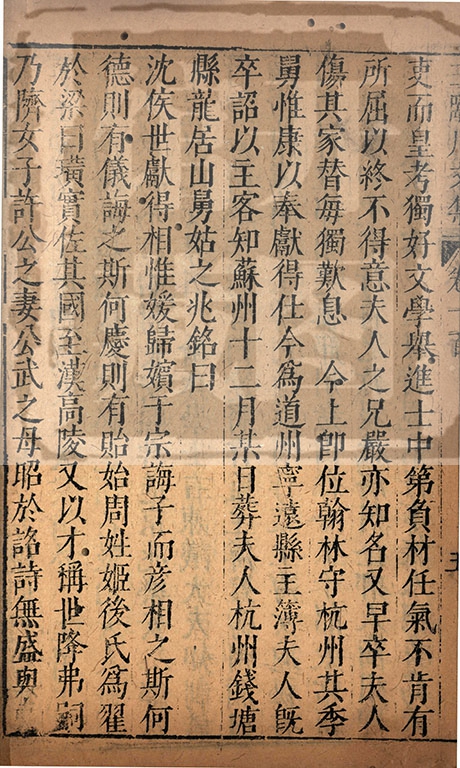 吏而皇考獨好文學舉進士中第負材任氣不肯有
所屈以終不得意夫人之兄嚴亦知名又早卒夫人
傷其家替每獨歎息　今上卽位翰林守杭州其季
舅惟康以奉獻得仕今爲道州寧遠縣主簿夫人旣
卒詔以主客知蘇州十二月某日葬夫人杭州錢塘
縣龍居山舅姑之兆銘曰
沈侯世獻得相惟媛歸嬪于宗誨子而彥相之斯何
德則有儀誨之斯何慶則有貽始周姓姬後氏爲翟
於梁曰璜實佐其國至漢高陵又以才稱世降弗嗣
乃隮女子許公之妻公武之母昭於詺詩無盛與